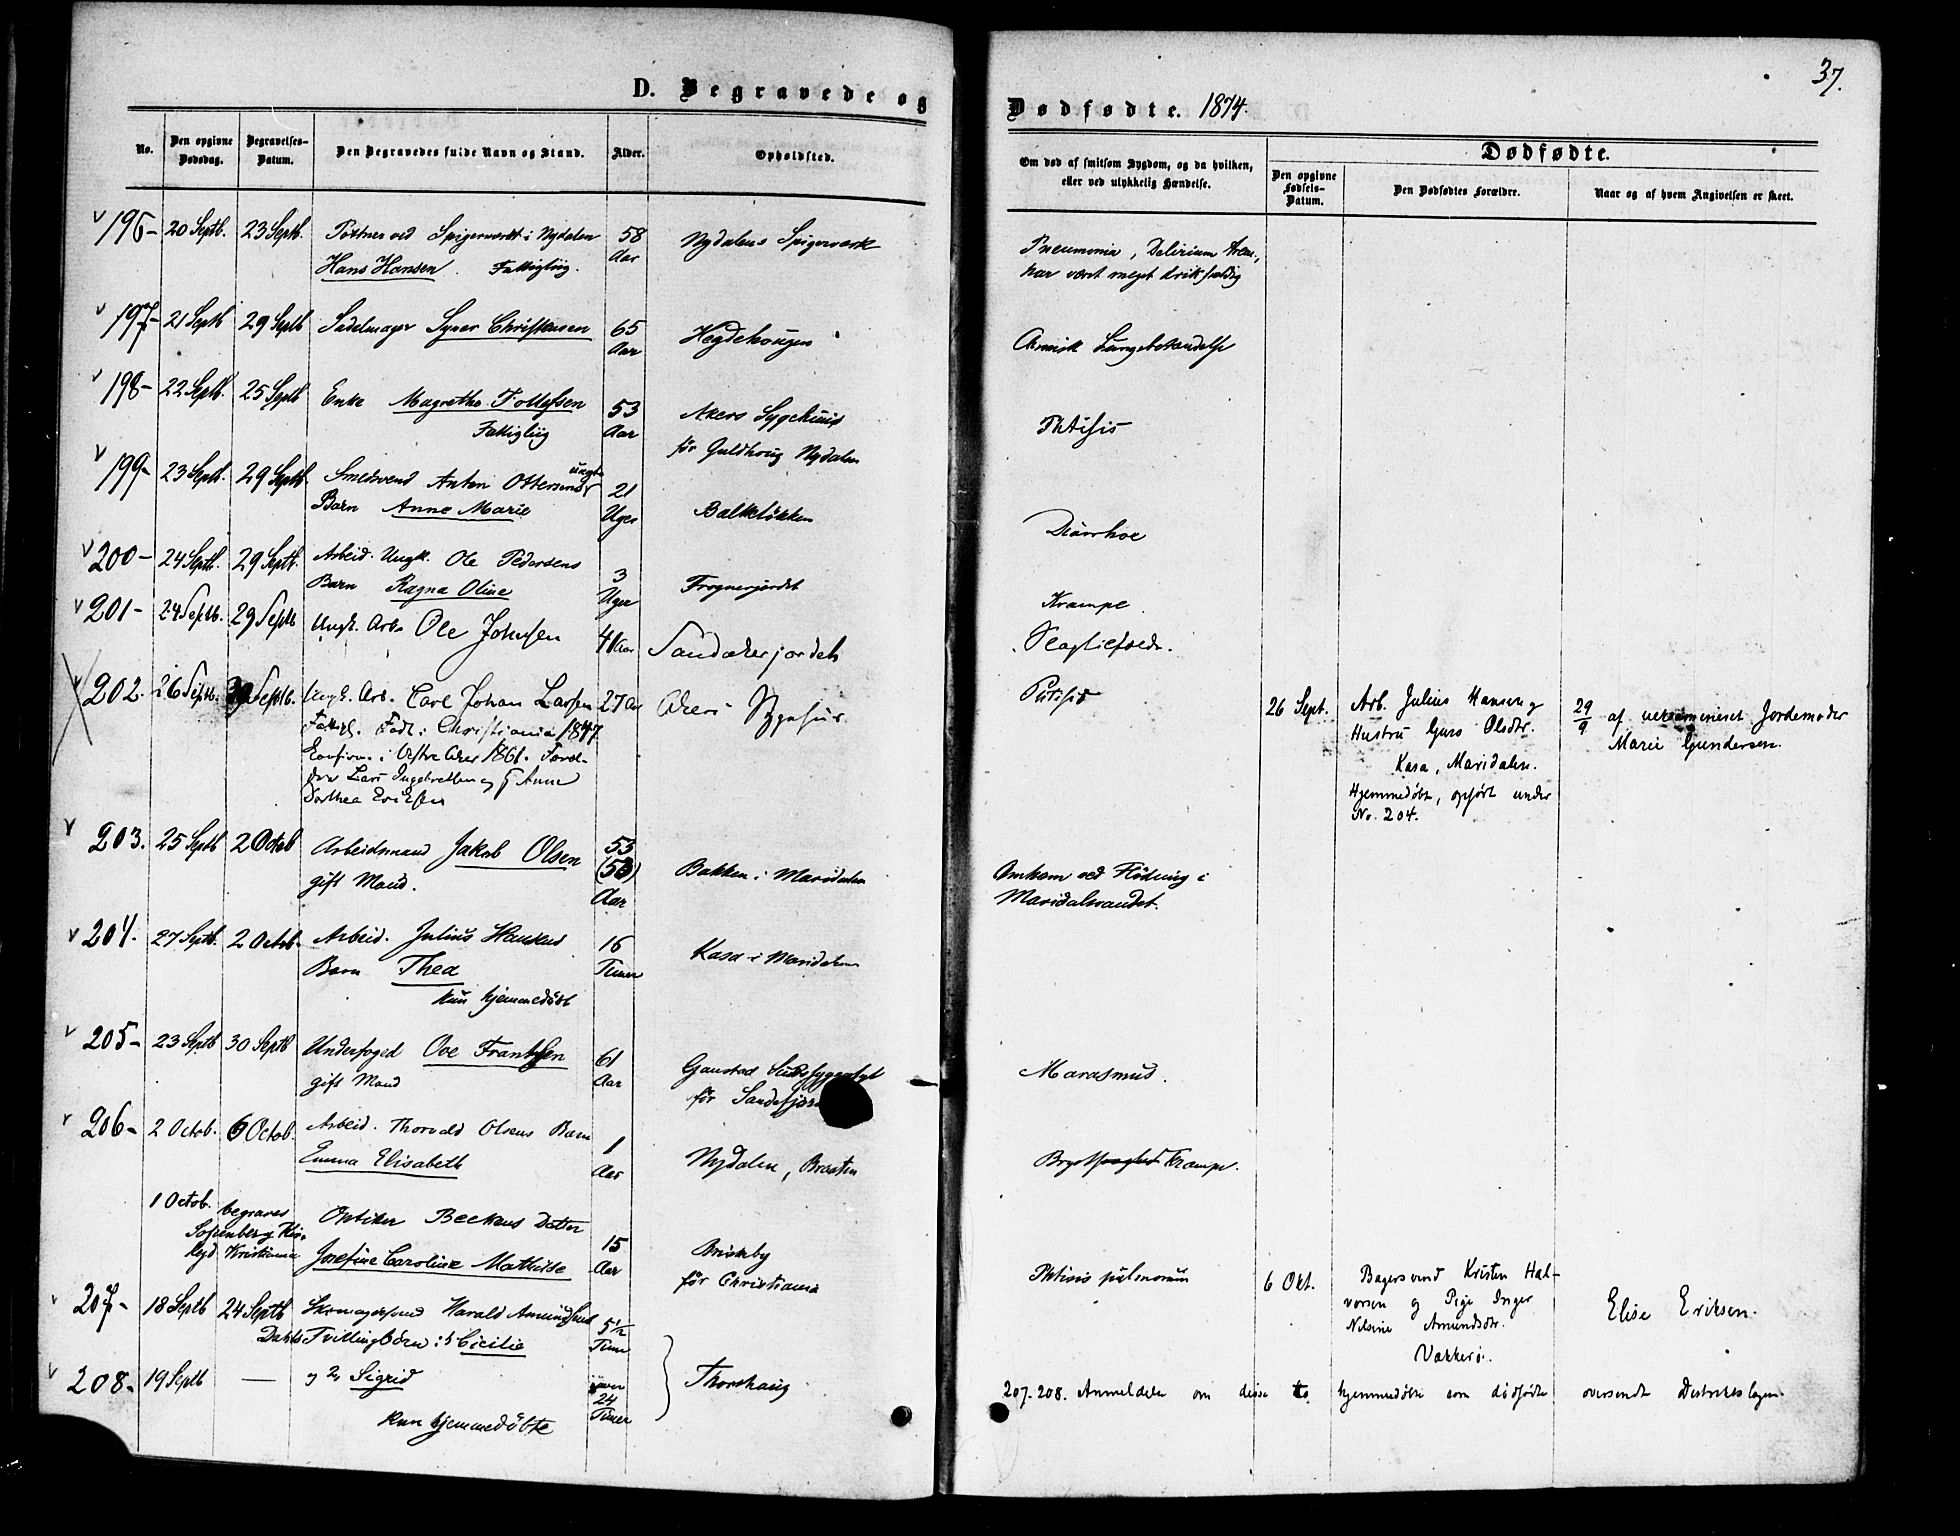 D. Begravede og
No.
Den opgivne Dødsdag.
Begravelses-Datum.
Den Begravedes fulde Navn og Stand.
Alder.
Opholdsted.
196 - 20 Septb. 23 Septb. ved Spigerverket i Nydalen 58 Aar Nydalens Spigerverk
Hans Hansen. Fattiglig.
197 - 21 Septb 29 Septb Sadelmager Syver Christensen 65 Aar Hegdehougen
198 - 22 Septb. 25 Septb Enke Magrethe Tollefsen 53 Aar Akers Sygehuus
Fattiglig før Guldhoug Nydalen
199 - 23 Septb. 29 Septb. Smedsvend Anton Ottersens 21 Uger Balkeløkken
Barn Anne Marie
200 - 24 Septb. 29 Septb. Arbeid. Ungk. Ole Pedersens 3 Uger Frognerjordet
Barn Ragna Oline
201 - 24 Septb. 29 Septb Ungk. Arb. Ole Johnsen 41 Aar Sandakerjordet
202. 26 Septb. 30 Septb. Ungk. Arb. Carl Johan Larsen 27 Aar Akers Sygehus
Fattigl. Født i Christiania 1847
Confirm. i Østre Aker 1861. Foræl-
dre Lars Ingebretsen og Anne
Dorthea Eriksen
203. 25 Septb 2 Octob Arbeidsmand Jakob Olsen 53 (50) Aar Bakken i Maridalen
gift Mand.
204. 27 Septb. 2 Octob. Arbeid. Julius Hansens 16 Timer Kasa i Maridalen
Barn Thea
kun hjemmedøbt
205 - 23 Septb 30 Septb Underfoged Ove Frantzen 61 Aar Gaustad Sindssygeasyl
gift Mand før Sandefjord
206 - 2 Octob. 6 Octob. Arbeid. Thorvald Olsens Barn 1 Aar Nydalen, Braaten
Emma Elisabeth
1 Octob. begraves Optiker Beckens Datter 15 Aar Briskeby
Sofienberg Kir-
kegd. Kristiania Josefine Caroline Mathilde før Christiania
207 - 18 Septb 24 Septb Skomagersvend Harald Amundsens 5 1/2 Timer
Dahls Tvillingbørn: 1 Cicilie
208 - 19 Septb — og 2, Sigrid 24 Timer Thorshaug
kun hjemmedøbte
37.
Dødfødte. 1874.
Om død af smitsom Sygdom, og da hvilken, eller ved ulykkelig Hændelse.
Dødfødte.
Den opgivne Fødsels-Datum.
Den Dødfødtes Forældre.
Naar og af hvem Angivelsen er skeet.
Pneumonia, Delirium trem.,
har været meget drikfældig
Cronisk Lungebetændelse
Phtisis
Diarrhoe
Krampe.
Slagtilfælde.
Phtisis
26 Sept. Arb. Julius Hansen og
Hustru Guro Olsdtr.
Kasa, Maridalen.
Hjemmedøbt, opført under
No. 204.
29/9 af uexamineret Jordemoder
Marie Gundersen.
Omkom ved Flødning i
Maridalsvandet.
Marasmus.
Krampe.
Phtisis pulmonum
6 Okt. Bagersvend Kristen Hal-
vorsen og Pige Inger
Nilsine Amundsdtr.
Vækkerø.
Elise Eriksen.
207. 208. Anmeldelse om disse to hjemmedøbte som dødfødte oversendt Distriktslægen.